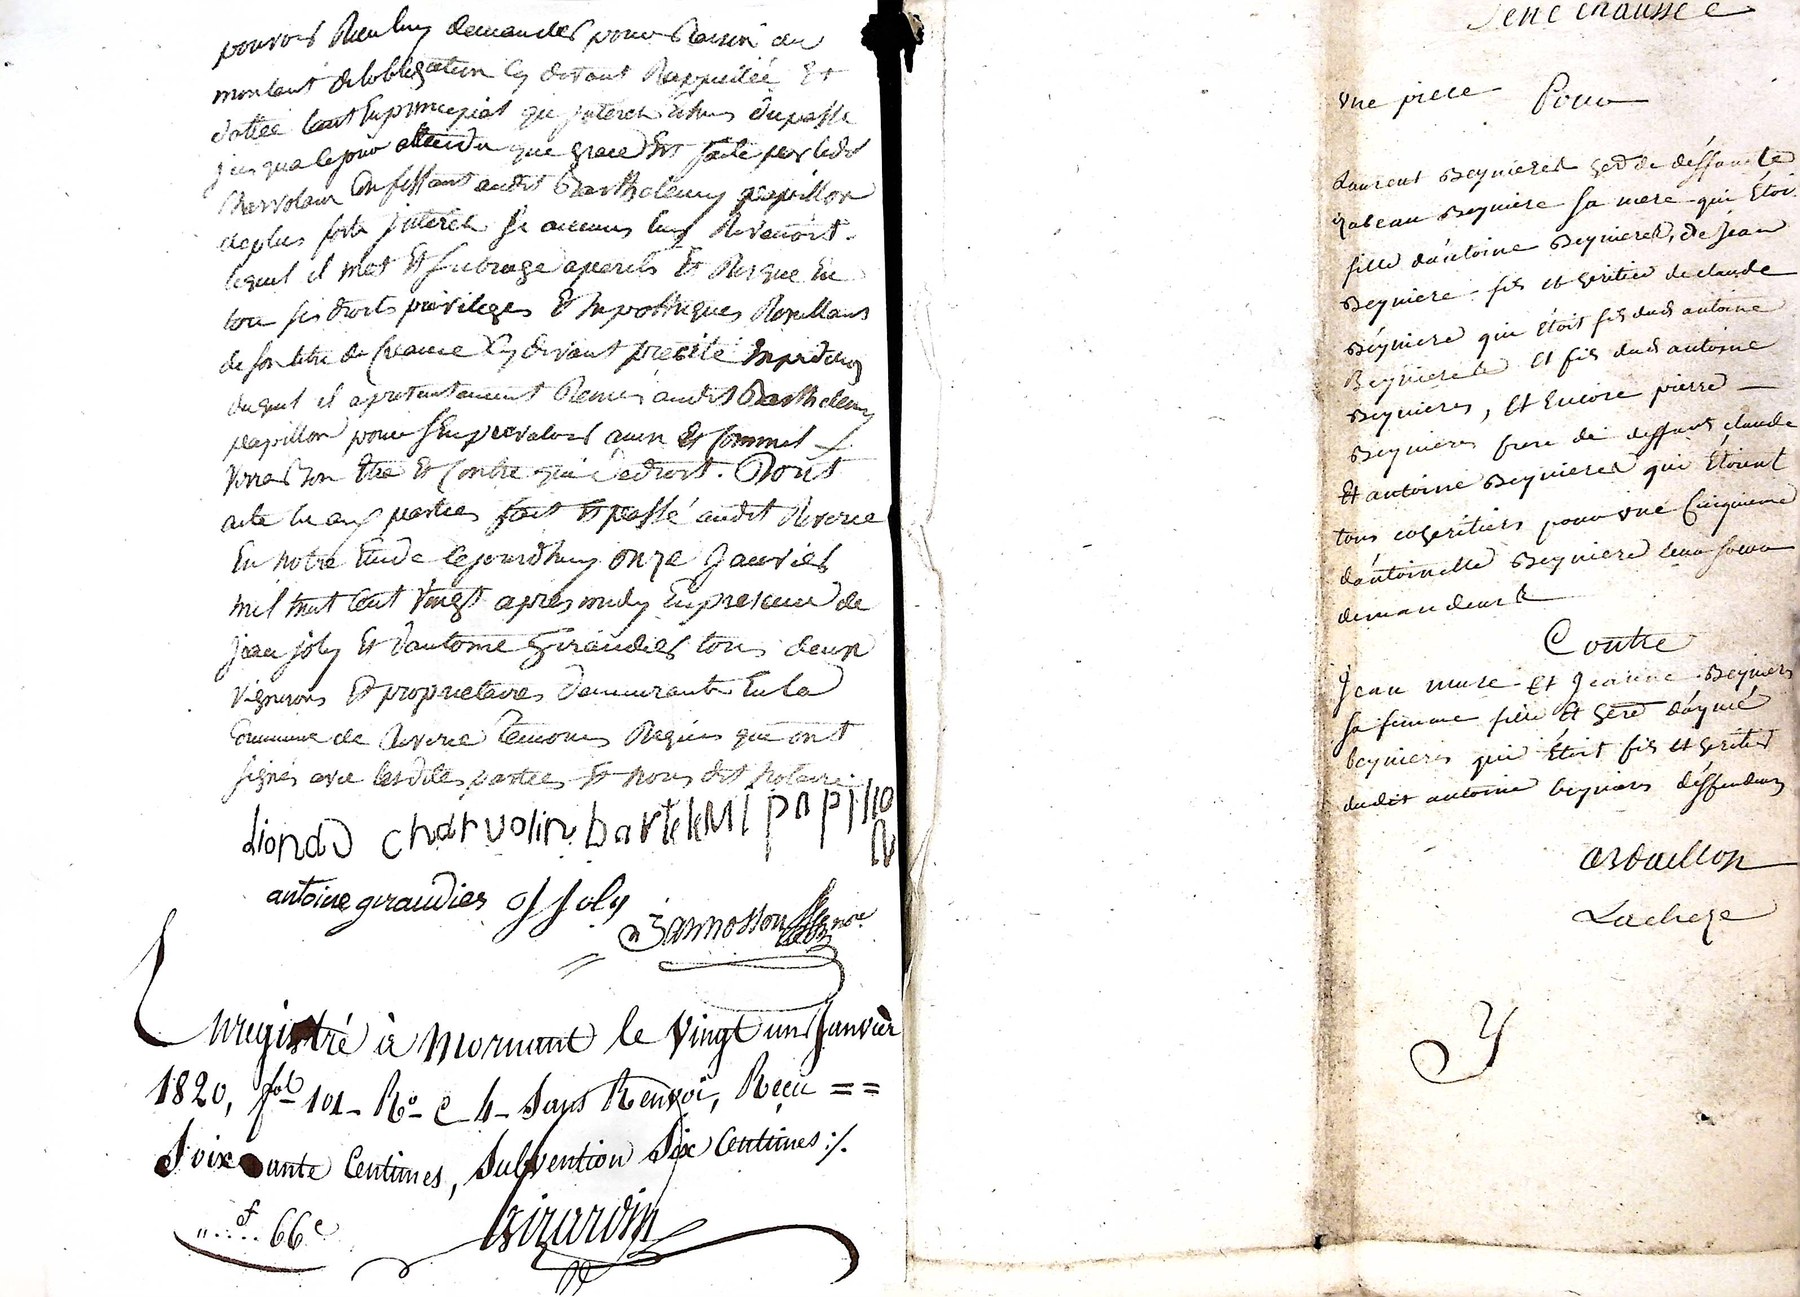 pouvoir Rien luy demander pour Raison du
montant de lobligation Cy devant Rappellée Et
dattée tant En principal que jnterets Echus du passé
jusqua Ce jour attendu que grace Est faite par ledit
Charvolain Confessant audit Barthelemy papillon
de plus forts jnterets
lequel il met Et subroge a perils Et Risque En
tou ses droits privileges Et hypothèques Resultans
de son titre de Creance Cy devant precité
duquel il a presentement Remis audit Barthelemy
papillon pour s'En prevaloir ainsi Et Comment
verra bon Etre Et Contre qui de droit. Dont
acte les aux parties fait Et passé audit Riverie
En notre Etude Cejourd'huy onze Janvier
mil huit Cent Vingt apres midy En presence de
jean joly Et d'antoine Giraudier tous deux
Vignerons Et proprietaires demeurants En la
Commune de Riverie temoins Requis qui ont
signés avec lesdites parties Et nous dit Notaire
LionaD charvolin bartelemi papillon
antoine giraudier J joly
Jannosson no.re
Enregistré à Mornant le Vingt un Janvier
1820, fol 101 - R° c 4 - Sans Renvoi, Reçu = =
Soixante Centimes, Subvention Six Centimes :/.
f 66 c
Girardin
Senechaussée
Une piece Pour
Laurent Beynieres herd de deffunte
Izabeau Beyniere sa mere qui Étoit
fille d'antoine Beynieres, de Jean
Beyniere fils et heritier de claude
Beyniere qui étoit fils dud antoine
Beynieres et fils dud antoine
Beynieres, et Encore pierre
Beynieres frere de deffunts claude
Et antoine Beynieres qui Étoient
tous coheritiers pour une Cinquieme
d'antoinette Beyniere leur soeur
demandeurs
Contre
Jean mure Et Jeanne Beyniers
sa femme fille Et herd d'aymé
beynieres qui Étoit fils et heritier
dudit antoine beyniers deffendeurs
Ardaillon
Lacheze